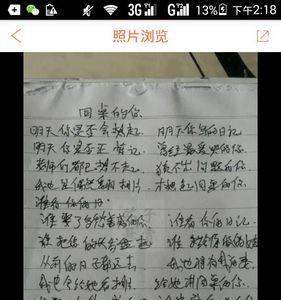 3G 4G G 13% 下午2:18
照片浏览
同桌的你
明天你是否会想起 明天你写的日记
明天你是否还惦记 曾经最爱哭的你
老师们都已想不起 猜不出问题的你
我也是偶然翻相片 才想起同桌的你
谁看你的日
谁娶了多愁善感的你 谁看你的日记
谁把你的长发盘起 谁给你做的嫁
从前的日子都远去 我也将有我的妻
我也会给她看相片 给她讲同桌的你